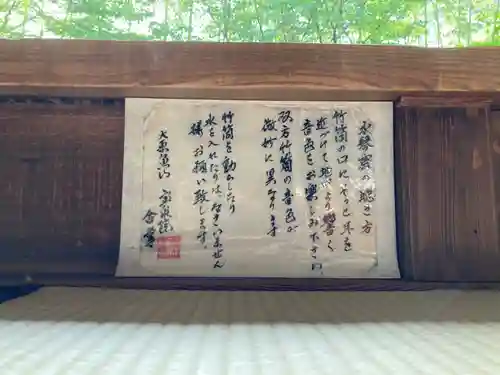 水琴窟の聴き方
竹筒の口にそっと耳を
近づけて地中より響く
音色をお楽しみ下さい
双方竹筒の音色が
微妙に異なります
竹筒を動かしたり
水を入れたりは なさいません
様お願い致します
大原魚山 宝泉院